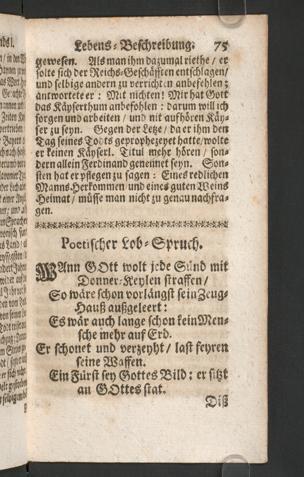 Lebens-Beschreibung. 75
gewesen. Als man ihm dazumal riethe / er
solte sich der Reichs-Geschäfften entschlagen/
und selbige andern zu verrichten anbefehlen;
antwortete er: Mit nichten! Mir hat Gott
das Käyserthum anbefohlen: darum will ich
sorgen und arbeiten / und nit aufhören Käy-
ser zu seyn. Gegen der Letze / da er ihm den
Tag seines Todts geprophezeyet hatte/wolte
er keinen Käyserl. Titul mehr hören / son-
dern allein Ferdinand genennet seyn. Son-
sten hat er pflegen zu sagen: Eines redlichen
Manns Herkommen und eines guten Weins
Heimat / müsse man nicht zu genau nachfra-
gen.
Poetischer Lob-Spruch.
WAnn GOtt wolt jede Sünd mit
Donner-Keylen straffen/
So wäre schon vorlängst sein Zeug-
Hauß außgeleert:
Es wär auch lange schon kein Men-
sche mehr auf Erd.
Er schonet und verzeyht / last feyren
seine Waffen.
Ein Fürst sey Gottes Bild: er sitzt
an GOttes stat.
Diß